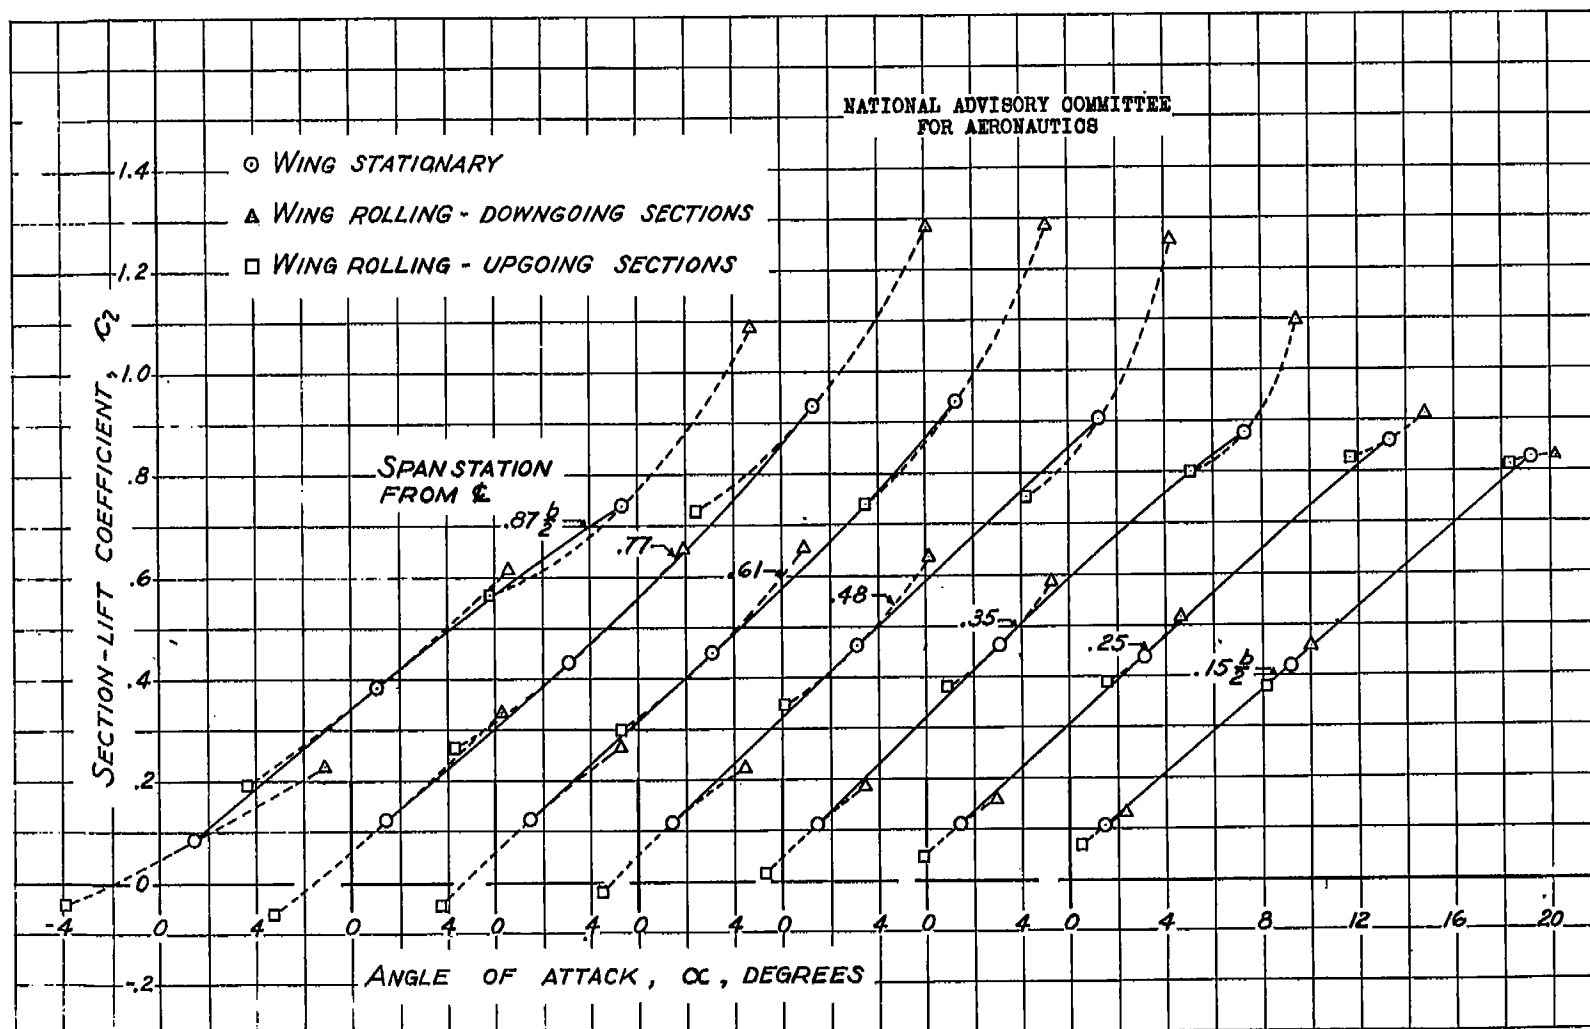 NATIONAL ADVISORY COMMITTEE
FOR AERONAUTICS
⊙ WING STATIONARY
△ WING ROLLING - DOWNGOING SECTIONS
□ WING ROLLING - UPGOING SECTIONS
SECTION-LIFT COEFFICIENT, Cl
1.4
1.2
1.0
.8
.6
.4
.2
0
-.2
SPAN STATION
FROM ℄
.87 b/2
.77
.61
.48
.35
.25
.15 b/2
-4 0 4 0 4 0 4 0 4 0 4 0 4 0 4 8 12 16 20
ANGLE OF ATTACK, α, DEGREES